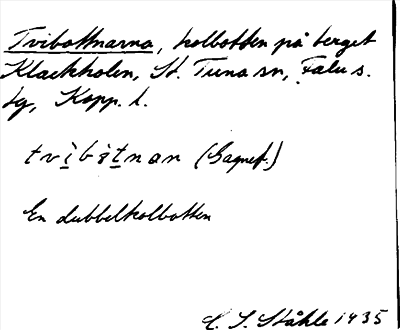 Tvibottnarna, kolbotten på berget
Klackholen, St. Tuna sn, Falu s.
tg, Kopp. l.
tvìbòtnan (Gagnef.)
En dubbelkolbotten
C. I. Ståhle 1935